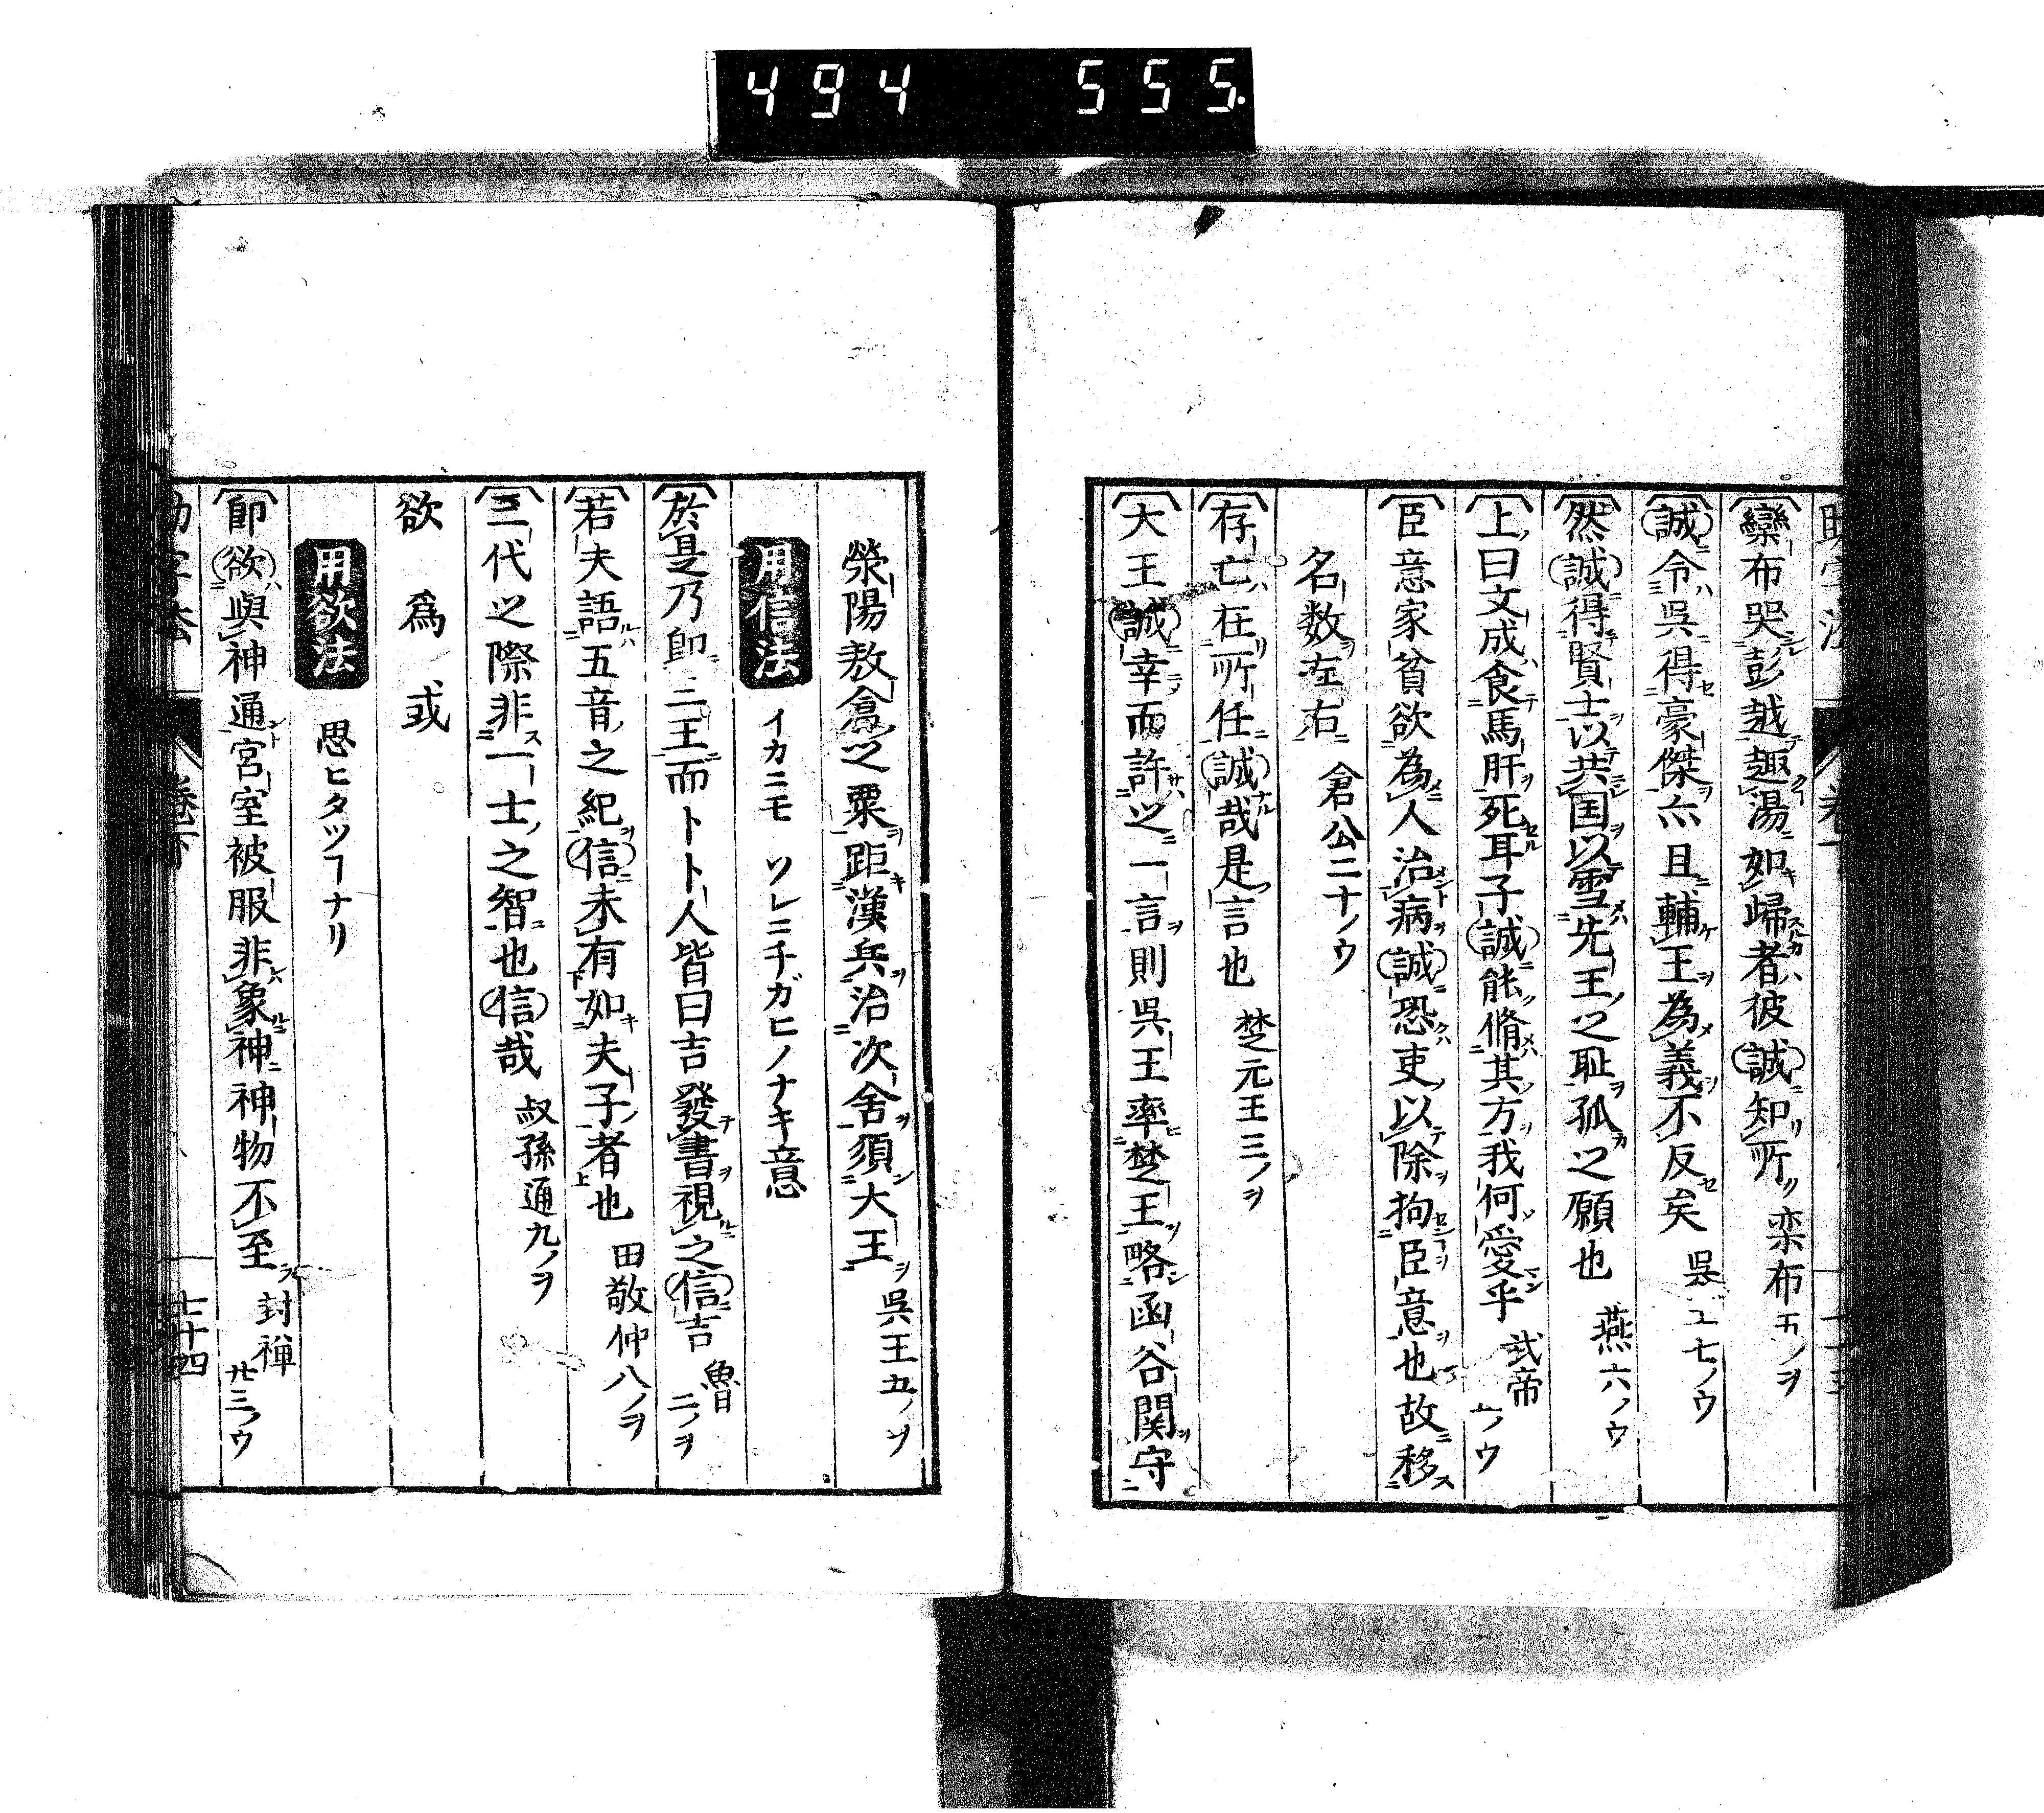 494 555
欒布哭彭越趣湯如歸者彼誠知所 栾布五ノヲ
誠令呉得豪傑亦且輔王為義不反矣 呉 七ノウ
然誠得賢士以共国以雪先王之耻孤之願也 燕六ノウ
上曰文成食馬肝死耳子誠能脩其方我何愛乎 武帝 ノウ
臣意家貧欲為人治病誠恐吏以除拘臣意也故移
名数左右 倉公二十ノウ
存亡在所任誠哉是言也 楚元王三ノヲ
大王誠幸而許之一言則呉王率楚王略函谷関守
滎陽敖倉之粟距漢兵治次舍須大王 呉王五ノヲ
用信法 イカニモ ソレニチガヒノナキ意
於是乃卽三王而卜卜人皆曰吉發書視之信吉 魯 二ノヲ
若夫語五音之紀信未有如夫子者也 田敬仲八ノヲ
三代之際非一士之智也信哉 叔孫通九ノヲ
欲 爲 或
用欲法 思ヒタツヿナリ
卽欲與神通宮室被服非象神神物不至 封禅 廿三ノウ
七十四